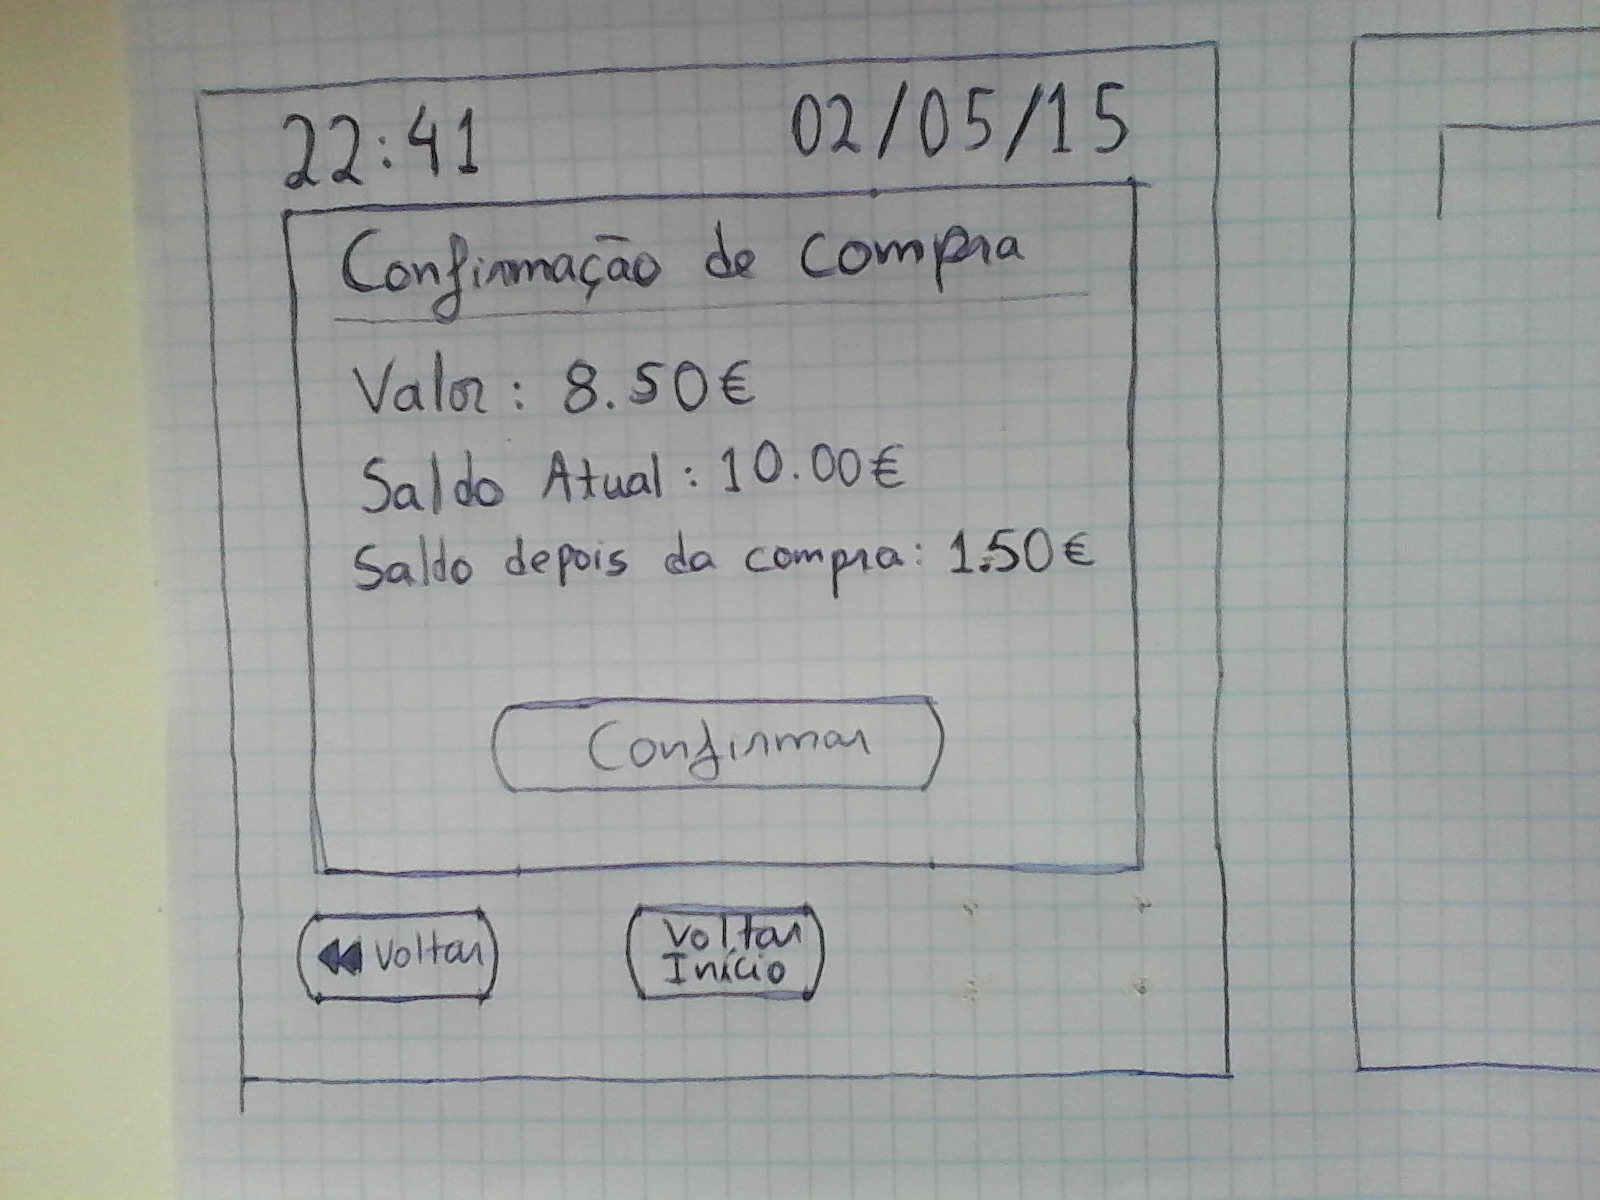 22:41 02/05/15
Confirmação de compra
Valor: 8.50€
Saldo Atual: 10.00€
Saldo depois da compra: 1.50€
Confirmar
Voltar
Voltar
Início